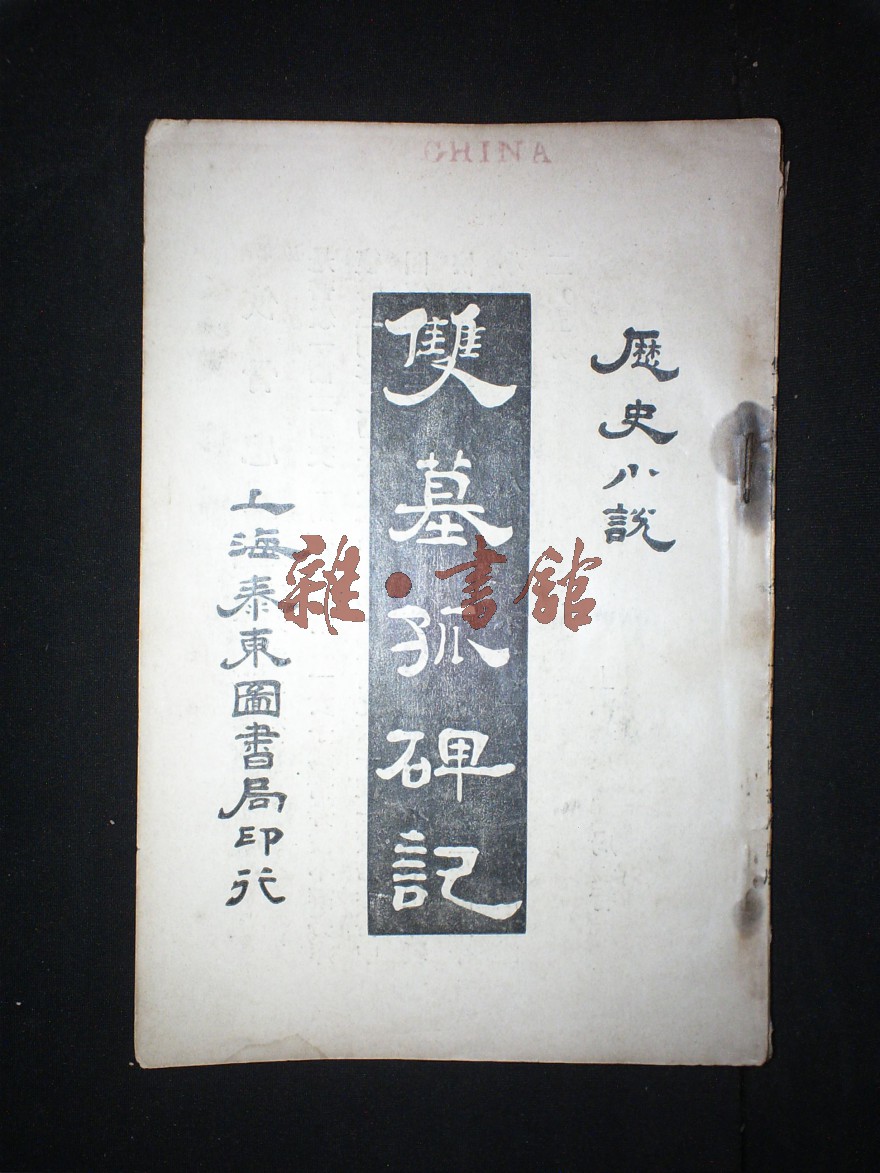 CHINA
歷史小說
雙墓孤碑記
上海泰東圖書局印行
雜·書館